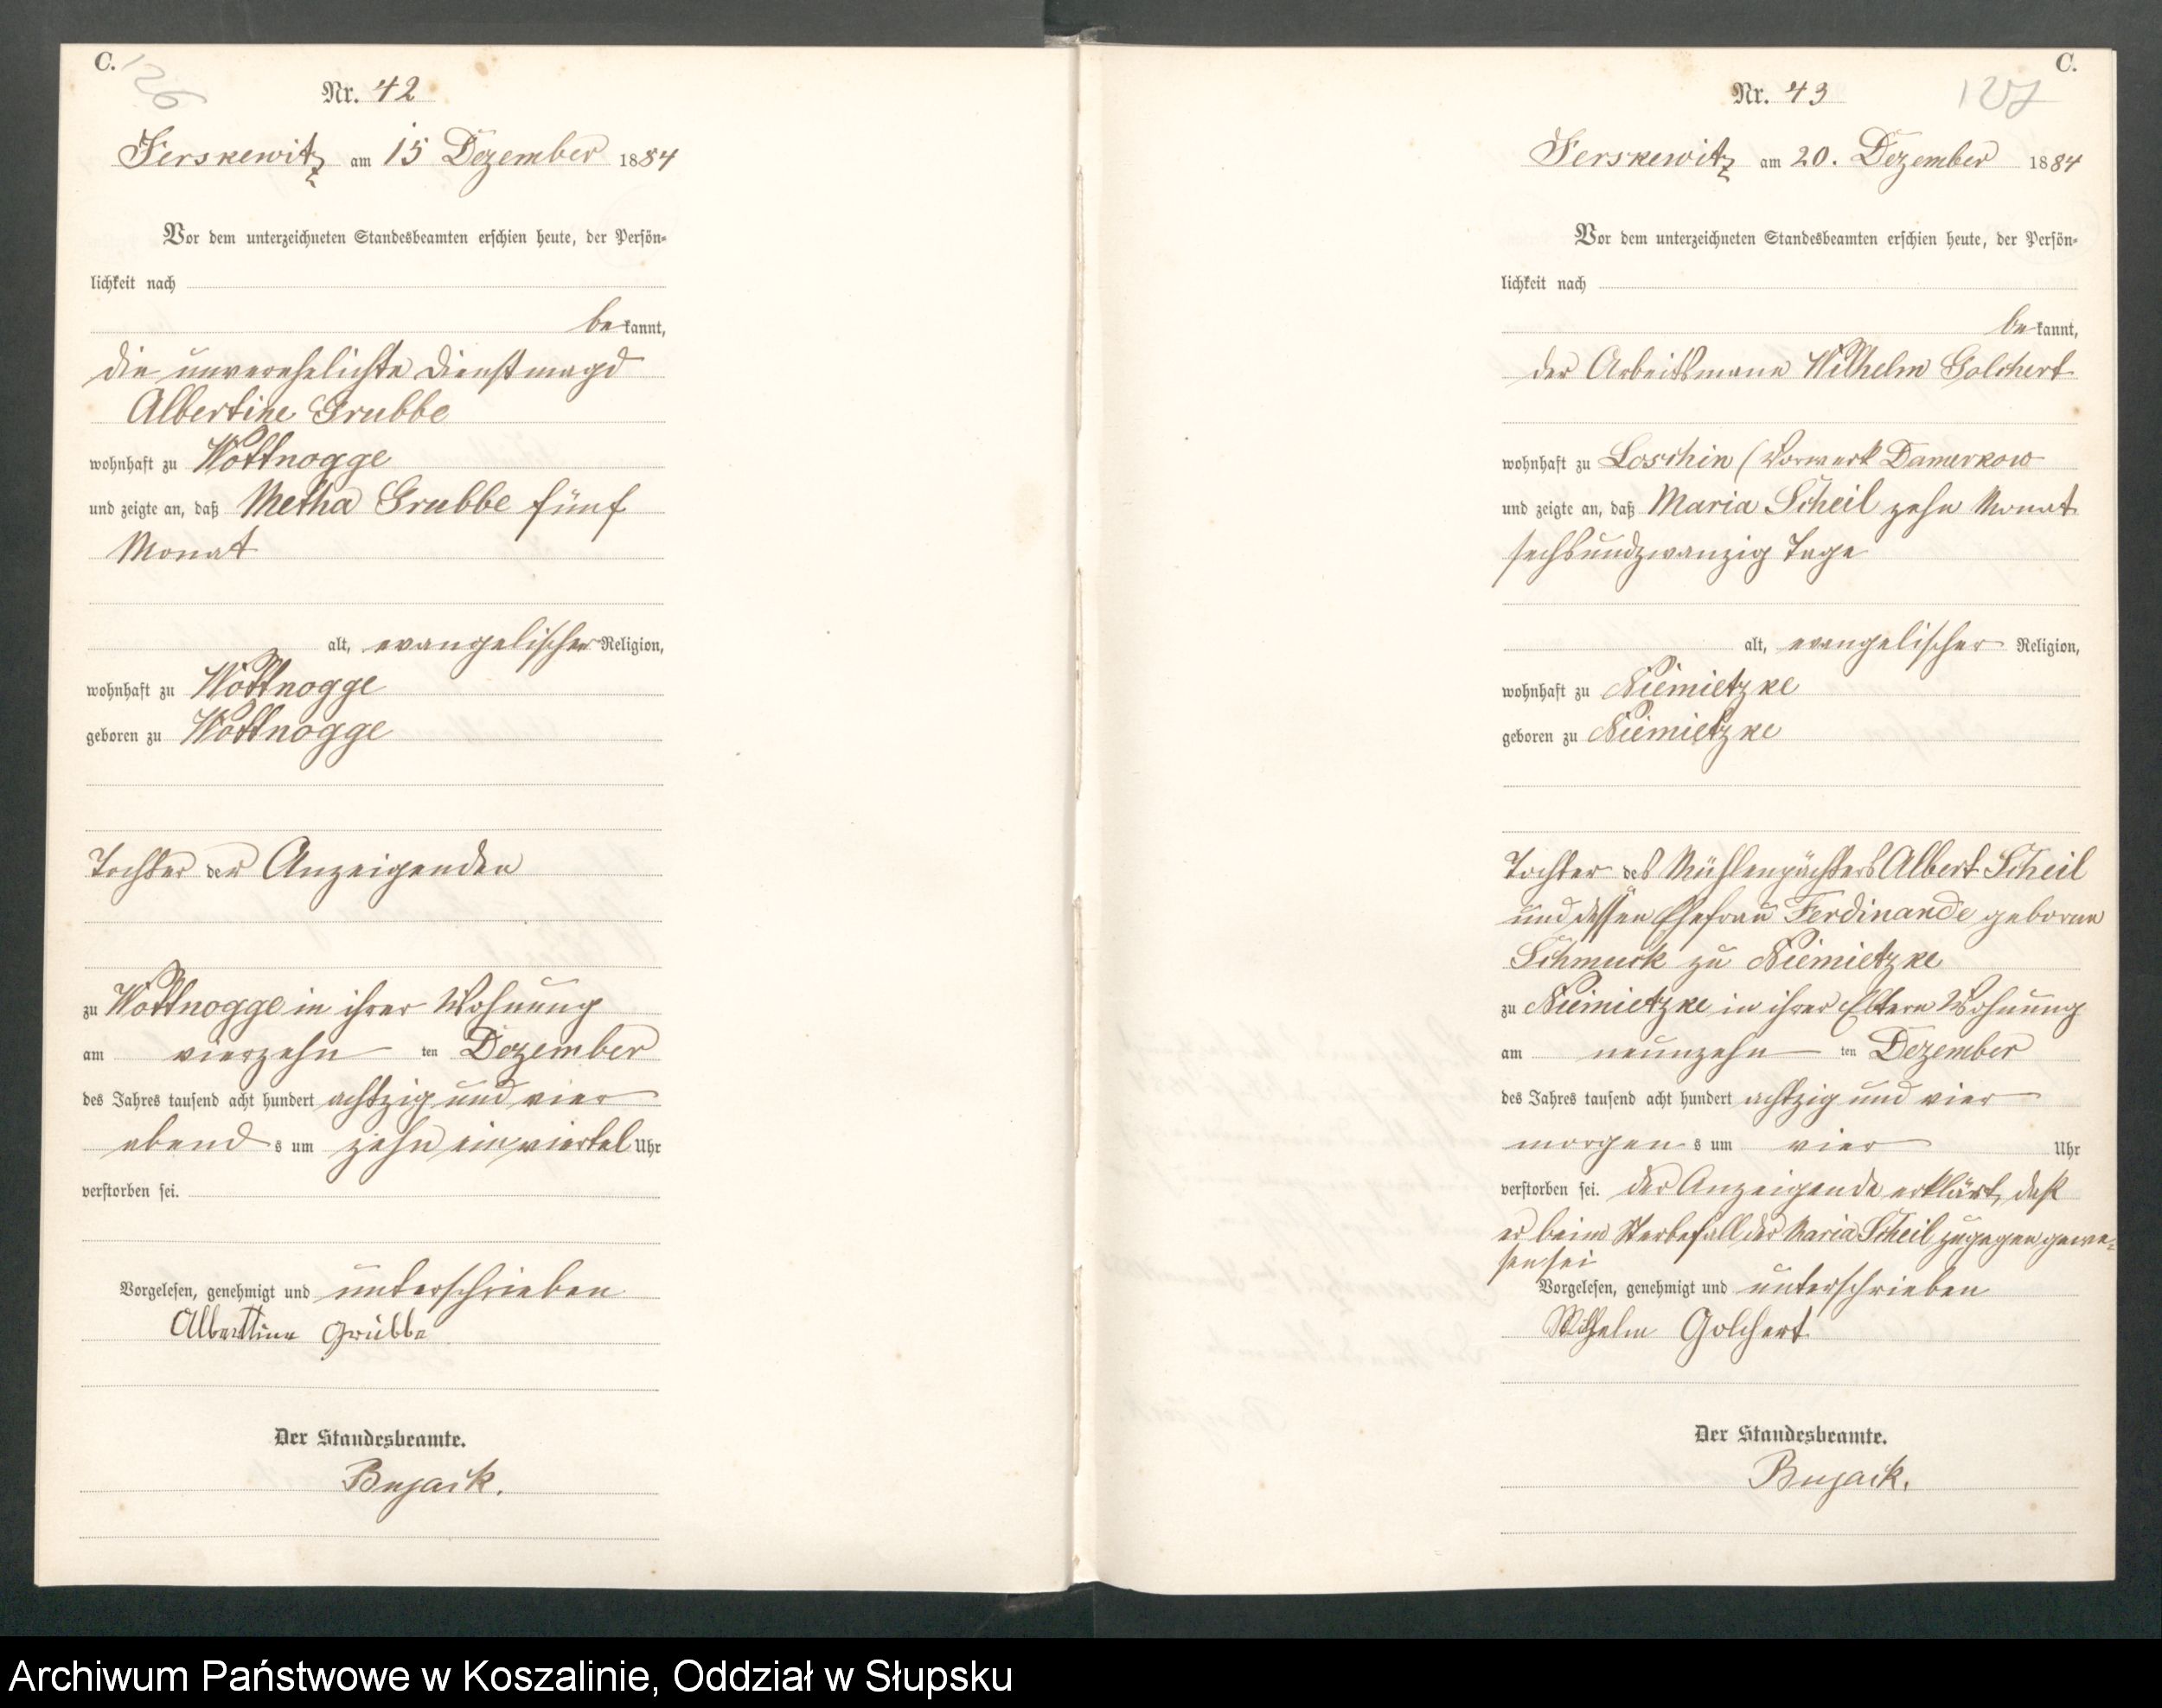 C.
126
Nr. 42
Jerskewitz am 15 Dezember 1884
Vor dem unterzeichneten Standesbeamten erschien heute, der Persön-
lichkeit nach
bekannt,
die unverehelichte Dienstmagd
Albertine Grubbe
wohnhaft zu Wottnogge
und zeigte an, daß Metha Grubbe fünf
Monat
alt, evangelischer Religion,
wohnhaft zu Wottnogge
geboren zu Wottnogge
Tochter der Anzeigenden
zu Wottnogge in ihrer Wohnung
am vierzehn ten Dezember
des Jahres tausend acht hundert achtzig und vier
abends um zehn ein viertel Uhr
verstorben sei.
Vorgelesen, genehmigt und unterschrieben
Albertine Grubbe
Der Standesbeamte.
Bujack.
C.
127
Nr. 43
Jerskewitz am 20. Dezember 1884
Vor dem unterzeichneten Standesbeamten erschien heute, der Persön-
lichkeit nach
bekannt,
der Arbeitsmann Wilhelm Golchert
wohnhaft zu Loschin (Vorwerk Damerkow
und zeigte an, daß Maria Scheil zehn Monat
sechsundzwanzig Tage
alt, evangelischer Religion,
wohnhaft zu Niemietzke
geboren zu Niemietzke
Tochter des Mühlenpächters Albert Scheil
und dessen Ehefrau Ferdinande geborne
Schmuck zu Niemietzke
zu Niemietzke in ihrer Eltern Wohnung
am neunzehn ten Dezember
des Jahres tausend acht hundert achtzig und vier
morgens um vier Uhr
verstorben sei. der Anzeigende erklärt, daß
er beim Sterbefall der Maria Scheil zugegen gewe-
sen sei
Vorgelesen, genehmigt und unterschrieben
Wilhelm Golchert
Der Standesbeamte.
Bujack.
Archiwum Państwowe w Koszalinie, Oddział w Słupsku